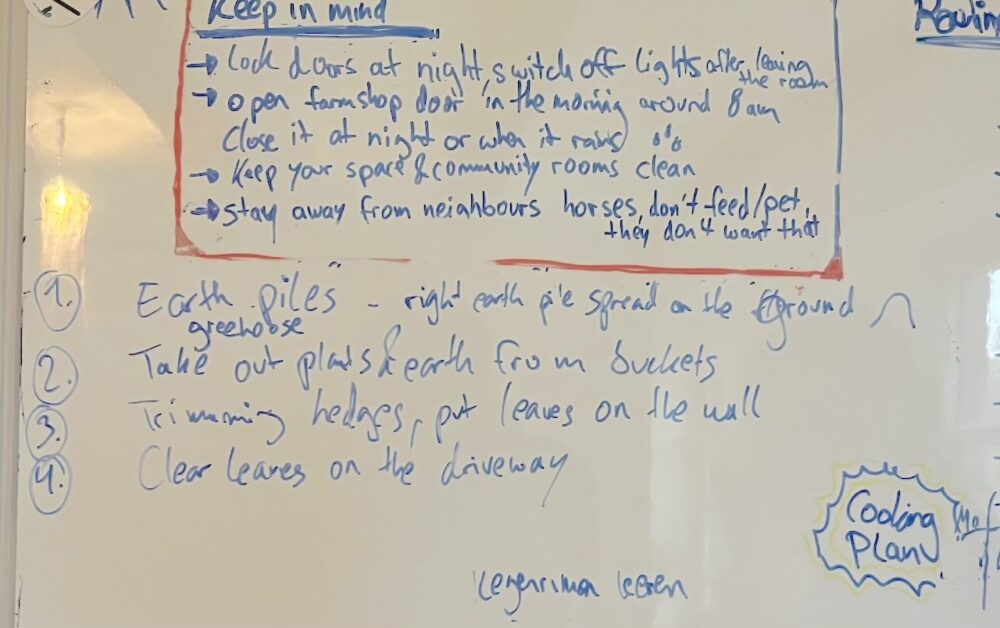 Keep in mind
→ Lock doors at night, switch off lights after leaving the room
→ open farmshop door in the morning around 8am
Close it at night or when it rains
→ Keep your space & community rooms clean
→ stay away from neighbours horses, don't feed/pet, they don't want that
1. Earth piles - right earth pile spread on the ground
greenhouse
2. Take out plants & earth from buckets
3. Trimming hedges, put leaves on the wall
4. Clear leaves on the driveway
Cooling
Plan
Mo
leeren